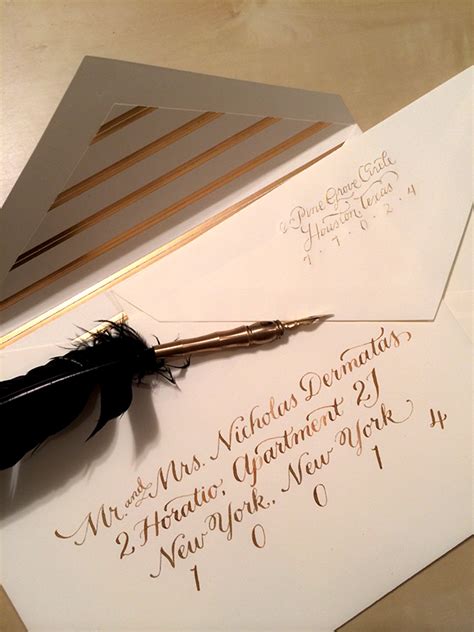 Pine Grove Circle
Houston, Texas
7 7 0 2 4
Mr. and Mrs. Nicholas Dermatas
2 Horatio, Apartment 2J
New York, New York
1 0 0 1 4